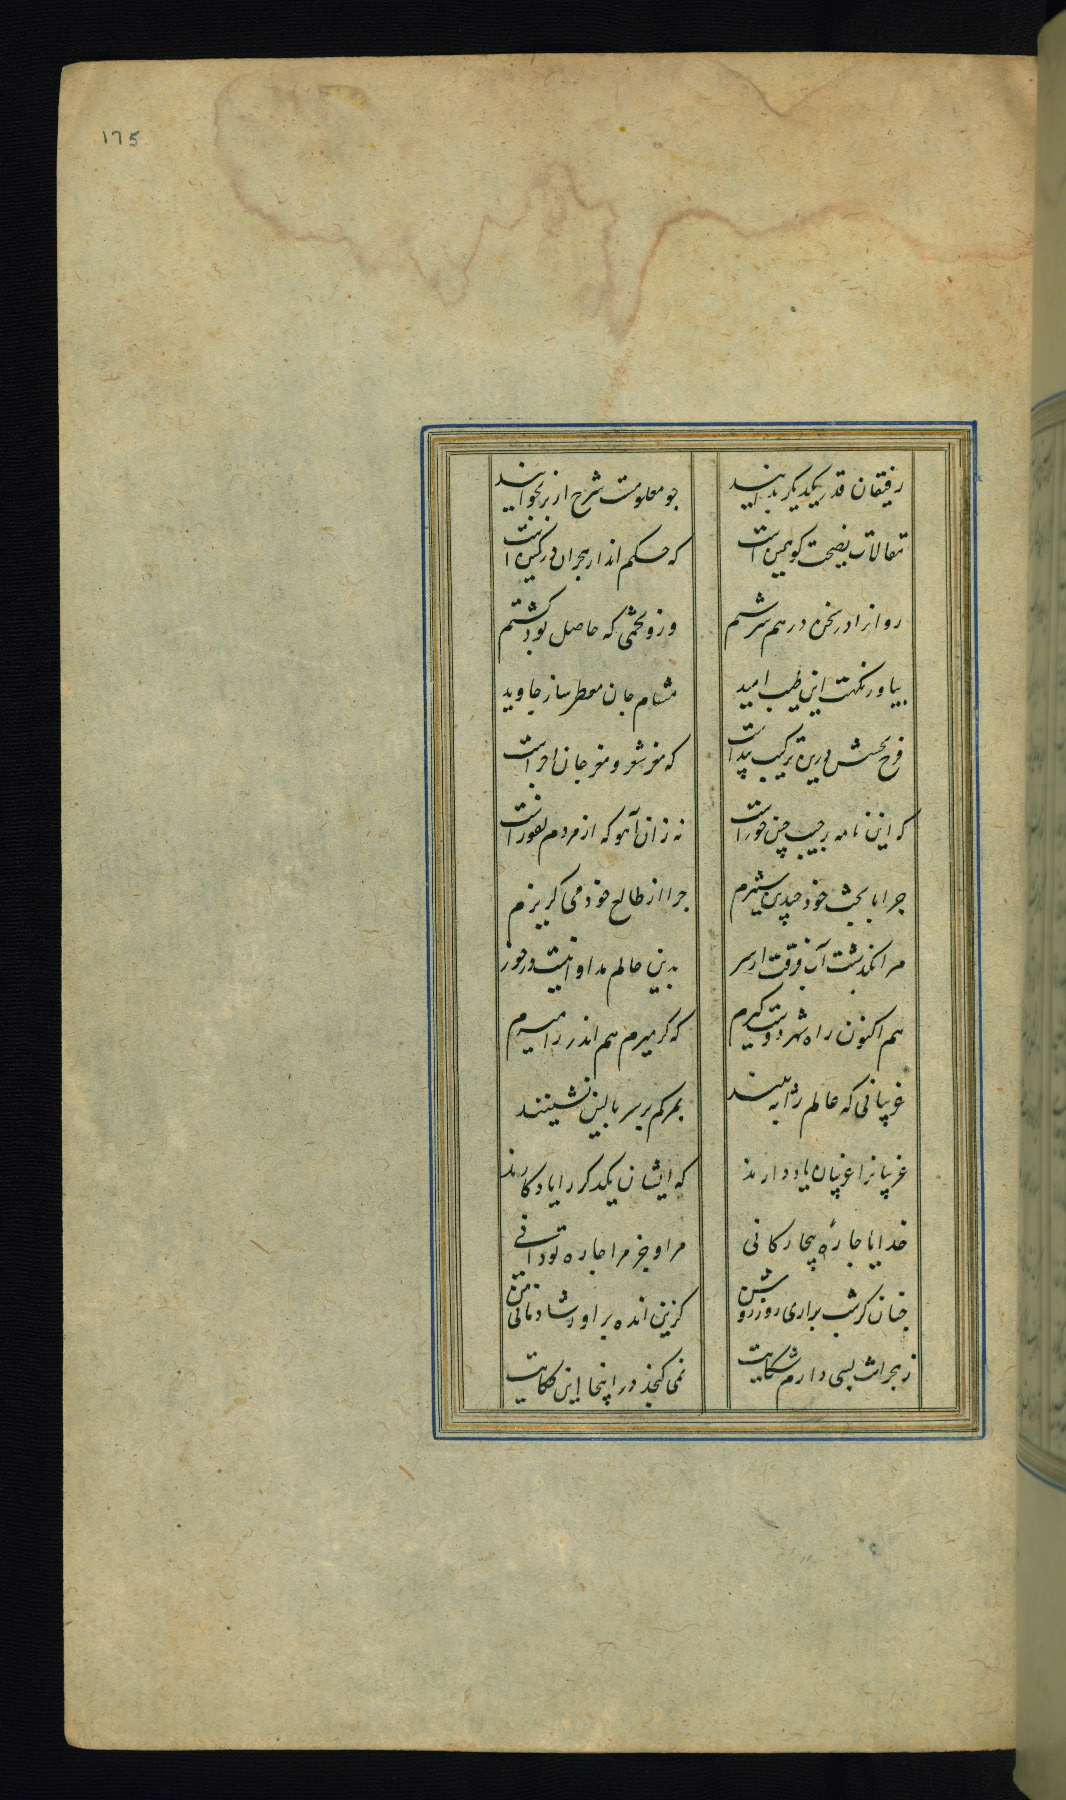 ١٦٥
رفیقان قدر یکدیکر بدانید جو معلومست شرح از بر بخوانید
مقالات نصیحت کو همین است که حکم انداز هجران در کمین است
روانرا در خرد درهم سرشتم وزو تخمی که حاصل بود کشتم
بیاور نکهت این طیب امید مشام جان معطر ساز جاوید
فرح بخشی درین ترکیب پیداست که مغز شعر و مغز جان اجزاست
که این نامه ز جیب چین حورست نه زان آهو که از مردم نفورست
جرا با بخت خود چندین ستیزم جرا از طالع خود می کریزم
مرا بکذشت آب فرقت از سر بدین حالم مداوا نیست درخور
هم اکنون راه شهر دوست کیرم که کر میرم هم اندر راه میرم
غریبانی که عالم را به بینند بمرکم بر سر بالین نشینند
غریبانرا غریبان یاد دارند که ایشان یکدکر را یادکارند
خدایا جارهٔ بیجارکانی مرا و جز مرا جاره تو دانی
جنان کز شب براری روز روشن کزین انده براور شادمانی من
ز هجرانت بسی دارم شکایت نمی کنجد در اینجا این حکایت